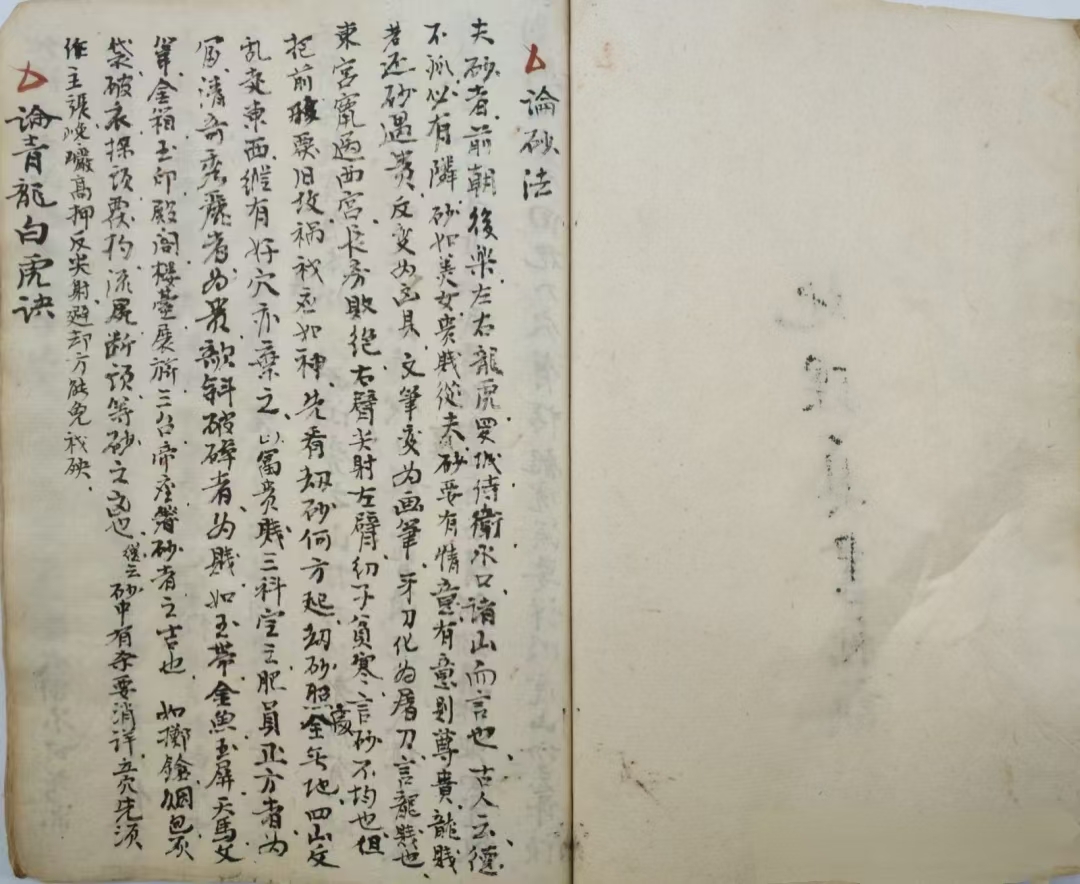 論砂法
夫砂者、前朝後樂左右龍虎罗城侍衛水口諸山而言也、古人云德
不孤必有隣、砂如美女貴賤從夫、砂要有情意、有意則尊貴、龍賤
若还砂遇貴、反変為凶具、文筆变为画筆、牙刀化为屠刀、言龍賤也、
東宮竄過西宮、长房敗绝、右臂尖射左臂、幼子貧寒、言砂不均也、但
把前砂要旧故、祸福应如神、先看劫砂何方起、劫砂照處全无地、四山反
乱走東西、縱有好穴亦棄之、以富贵賤三科定之、肥員正方者、为
富、清奇秀麗者为貴、欹斜破碎者、为賤、如玉帶金魚玉屏天馬文
筆、金箱玉印殿阁楼臺展旂三台帝座等砂者之吉也、如擲鎗烟包
袋、破衣探頭覆杓流屍断頭等砂之凶也、後云砂中有杀要消详、立穴先须
作主張、巉巖高押反尖射、避却方能免祸殃、
論青龍白虎诀